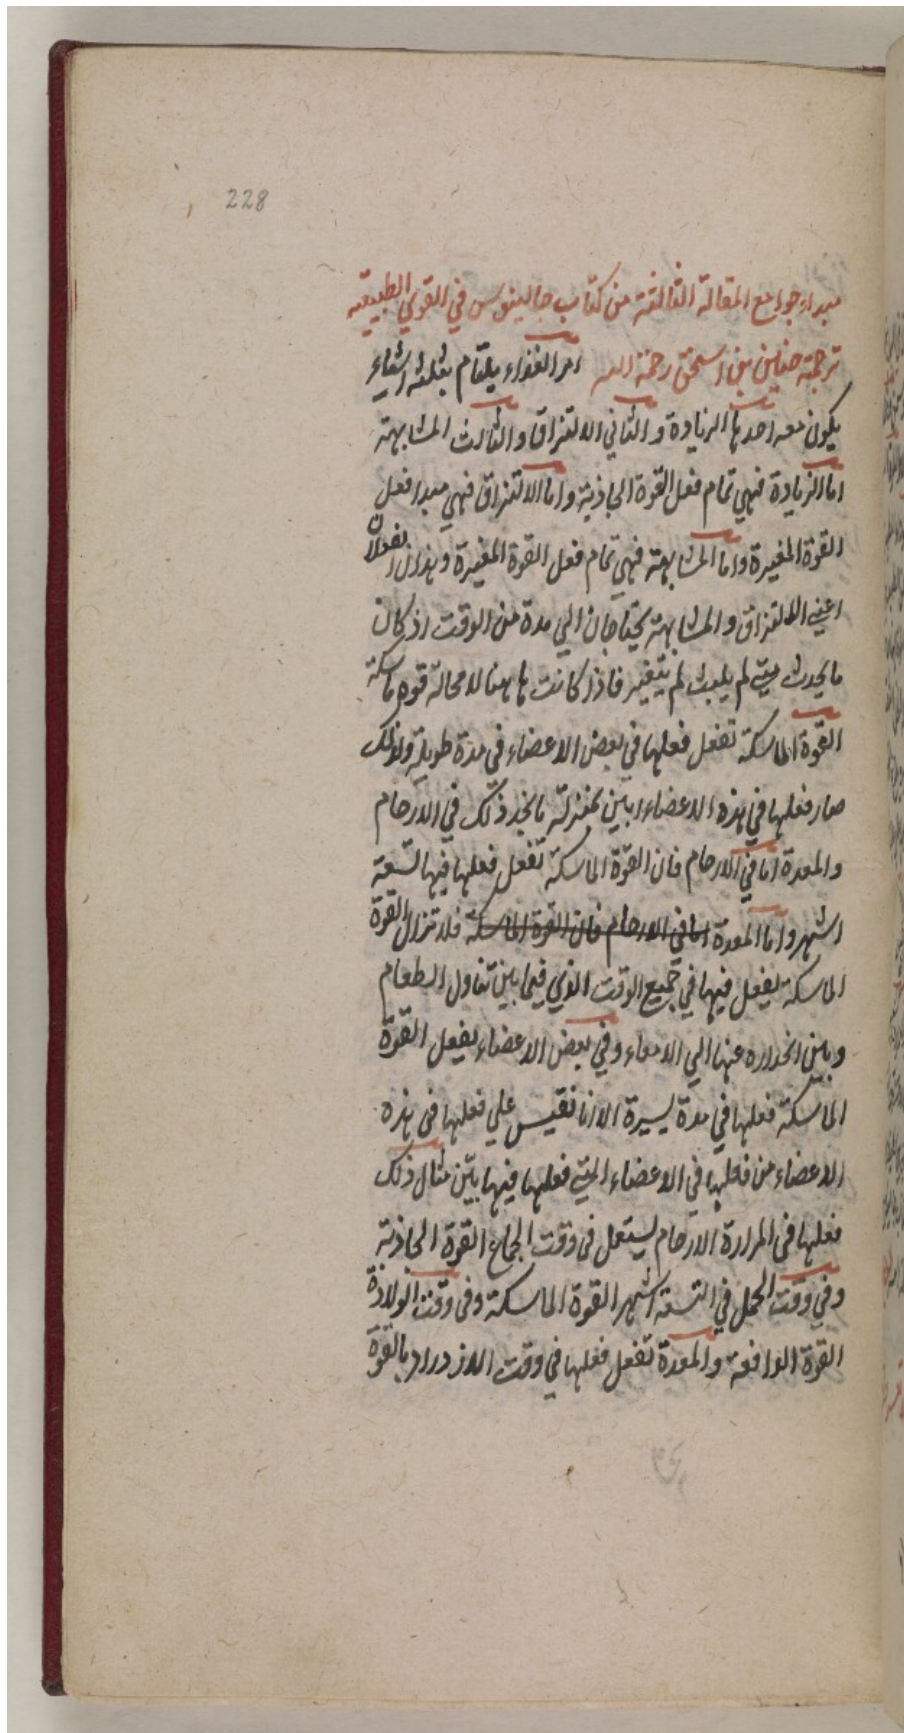 228
مبدا جوامع المقالة الثالثة من كتاب جالينوس في القوي الطبيعيه
ترجمة حنين بن اسحق رحمة الله امر الغذاء يلتام بثلثه اشياء
يكون معه احدها الزيادة و الثاني الالتزاق و الثالث المشابهة
اما الزيادة فهي تمام فعل القوة الجاذبة و اما الالتزاق فهي مبدا فعل
القوة المغيرة و اما المشابهة فهي تمام فعل القوة المغيرة و هذان الفعلان
اعني الالتزاق و المشابهة يحتاجان الي مدة من الوقت اذ كان
ما يحدث متي لم يلبث لم يتغير فاذا كانت هاهنا لا محالة قوه ماسكة
القوة الماسكة تفعل فعلها في بعض الاعضاء في مدة طويلة ولذلك
صار فعلها في هذه الاعضاء ابين بمنزلة ما نجد ذلك في الارحام
والمعدة اما في الارحام فان القوة الماسكة تفعل فعلها فيها التسعة
اشهر و اما المعدة اما في الارحام فان القوة الماسكة فلا تزال القوة
الماسكة يفعل فيها في جميع الوقت الذي فيما بين تناول الطعام
و بين انحداره عنها الي الامعاء و في بعض الاعضاء يفعل القوة
الماسكة فعلها في مدة يسيرة الا انا نقيس علي فعلها في هذه
الاعضاء من فعلها في الاعضاء التي فعلها فيها بين مثال ذلك
فعلها في المرارة الارحام يستعمل في وقت الجماع القوة الجاذبة
و في وقت الحمل في التسعة اشهر القوة الماسكة و في وقت الولادة
القوة الدافعة و المعدة تفعل فعلها في وقت الازدراد بالقوة